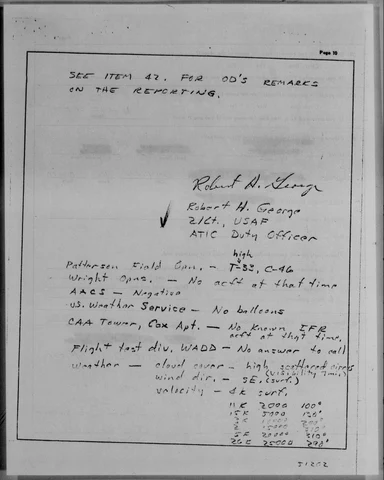 Page 10
SEE ITEM 42, FOR OD'S REMARKS
ON THE REPORTING.
Robert H. George
Robert H. George
2/Lt., USAF
ATIC Duty Officer
high
Patterson Field Opn. – T-33, C-46
Wright Opns. – No acft at that time
AACS – Negative
U.S. Weather Service – No balloons
CAA Tower, Cox Apt. – No known IFR
acft at that time.
Flight test div. WADD – No answer to call
Weather – cloud cover – high scattered cirrus
(visibility
wind dir. – SE. (surf.)
velocity – 4k surf.
11K 2000 100°
15K 5000